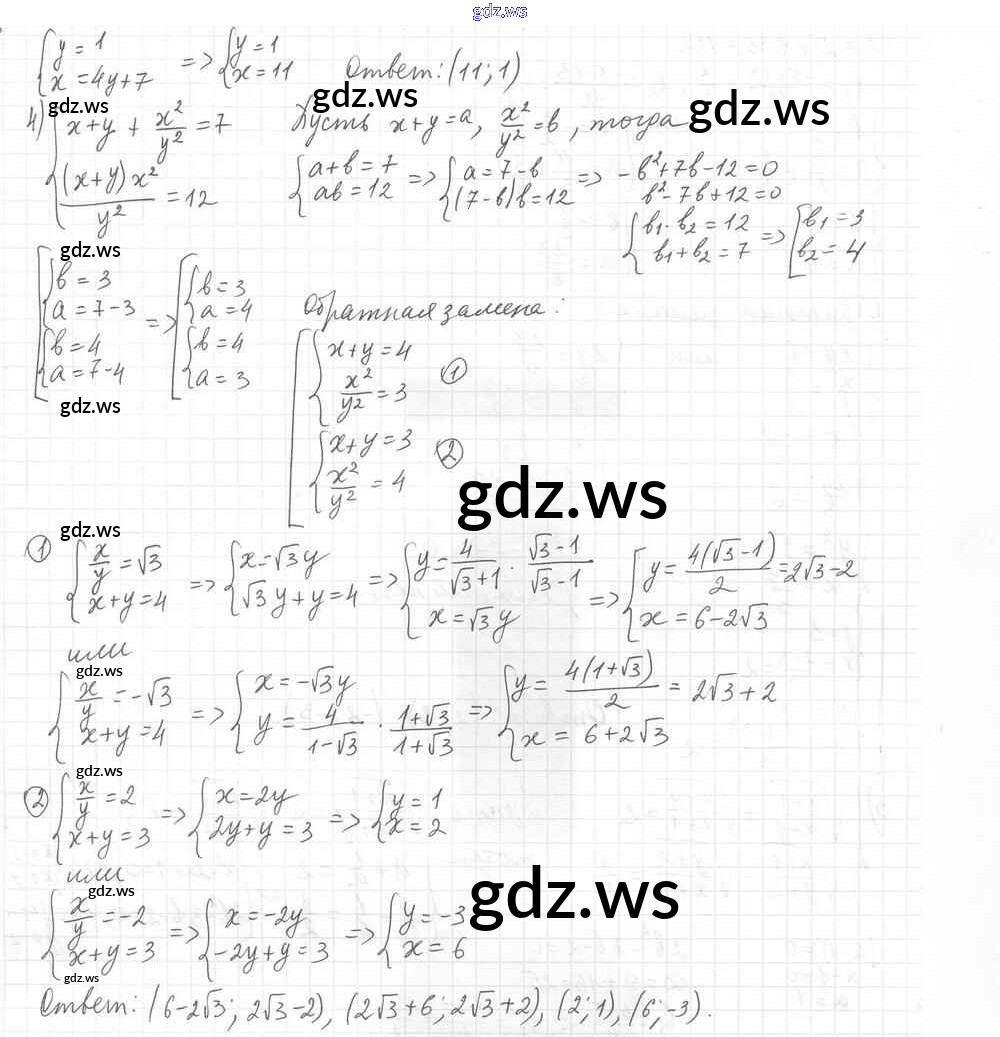 gdz.ws
{ y = 1 x = 4y+7 => { y = 1 x = 11 Ответ: (11; 1)
gdz.ws gdz.ws gdz.ws
4) { x+y + x²/y² = 7 (x+y)x²/y² = 12 Пусть x+y = a, x²/y² = b, тогда
{ a+b = 7 ab = 12 => { a = 7-b (7-b)b = 12 => -b²+7b-12=0
b²-7b+12=0
{ b₁·b₂ = 12 b₁+b₂ = 7 => [ b₁ = 3 b₂ = 4
gdz.ws
[ { b = 3 a = 7-3 { b = 4 a = 7-4 => [ { b = 3 a = 4 { b = 4 a = 3 Обратная замена:
[ { x+y = 4 x²/y² = 3 ①
{ x+y = 3 x²/y² = 4 ②
gdz.ws
gdz.ws
gdz.ws
① { x/y = √3 x+y = 4 => { x = √3y √3y+y = 4 => { y = 4/(√3+1) · (√3-1)/(√3-1) x = √3y => { y = 4(√3-1)/2 = 2√3-2 x = 6-2√3
или
gdz.ws
{ x/y = -√3 x+y = 4 => { x = -√3y y = 4/(1-√3) · (1+√3)/(1+√3) => { y = 4(1+√3)/2 = 2√3+2 x = 6+2√3
gdz.ws
② { x/y = 2 x+y = 3 => { x = 2y 2y+y = 3 => { y = 1 x = 2
или
gdz.ws gdz.ws
{ x/y = -2 x+y = 3 => { x = -2y -2y+y = 3 => { y = -3 x = 6
gdz.ws
Ответ: (6-2√3; 2√3-2), (2√3+6; 2√3+2), (2; 1), (6; -3).